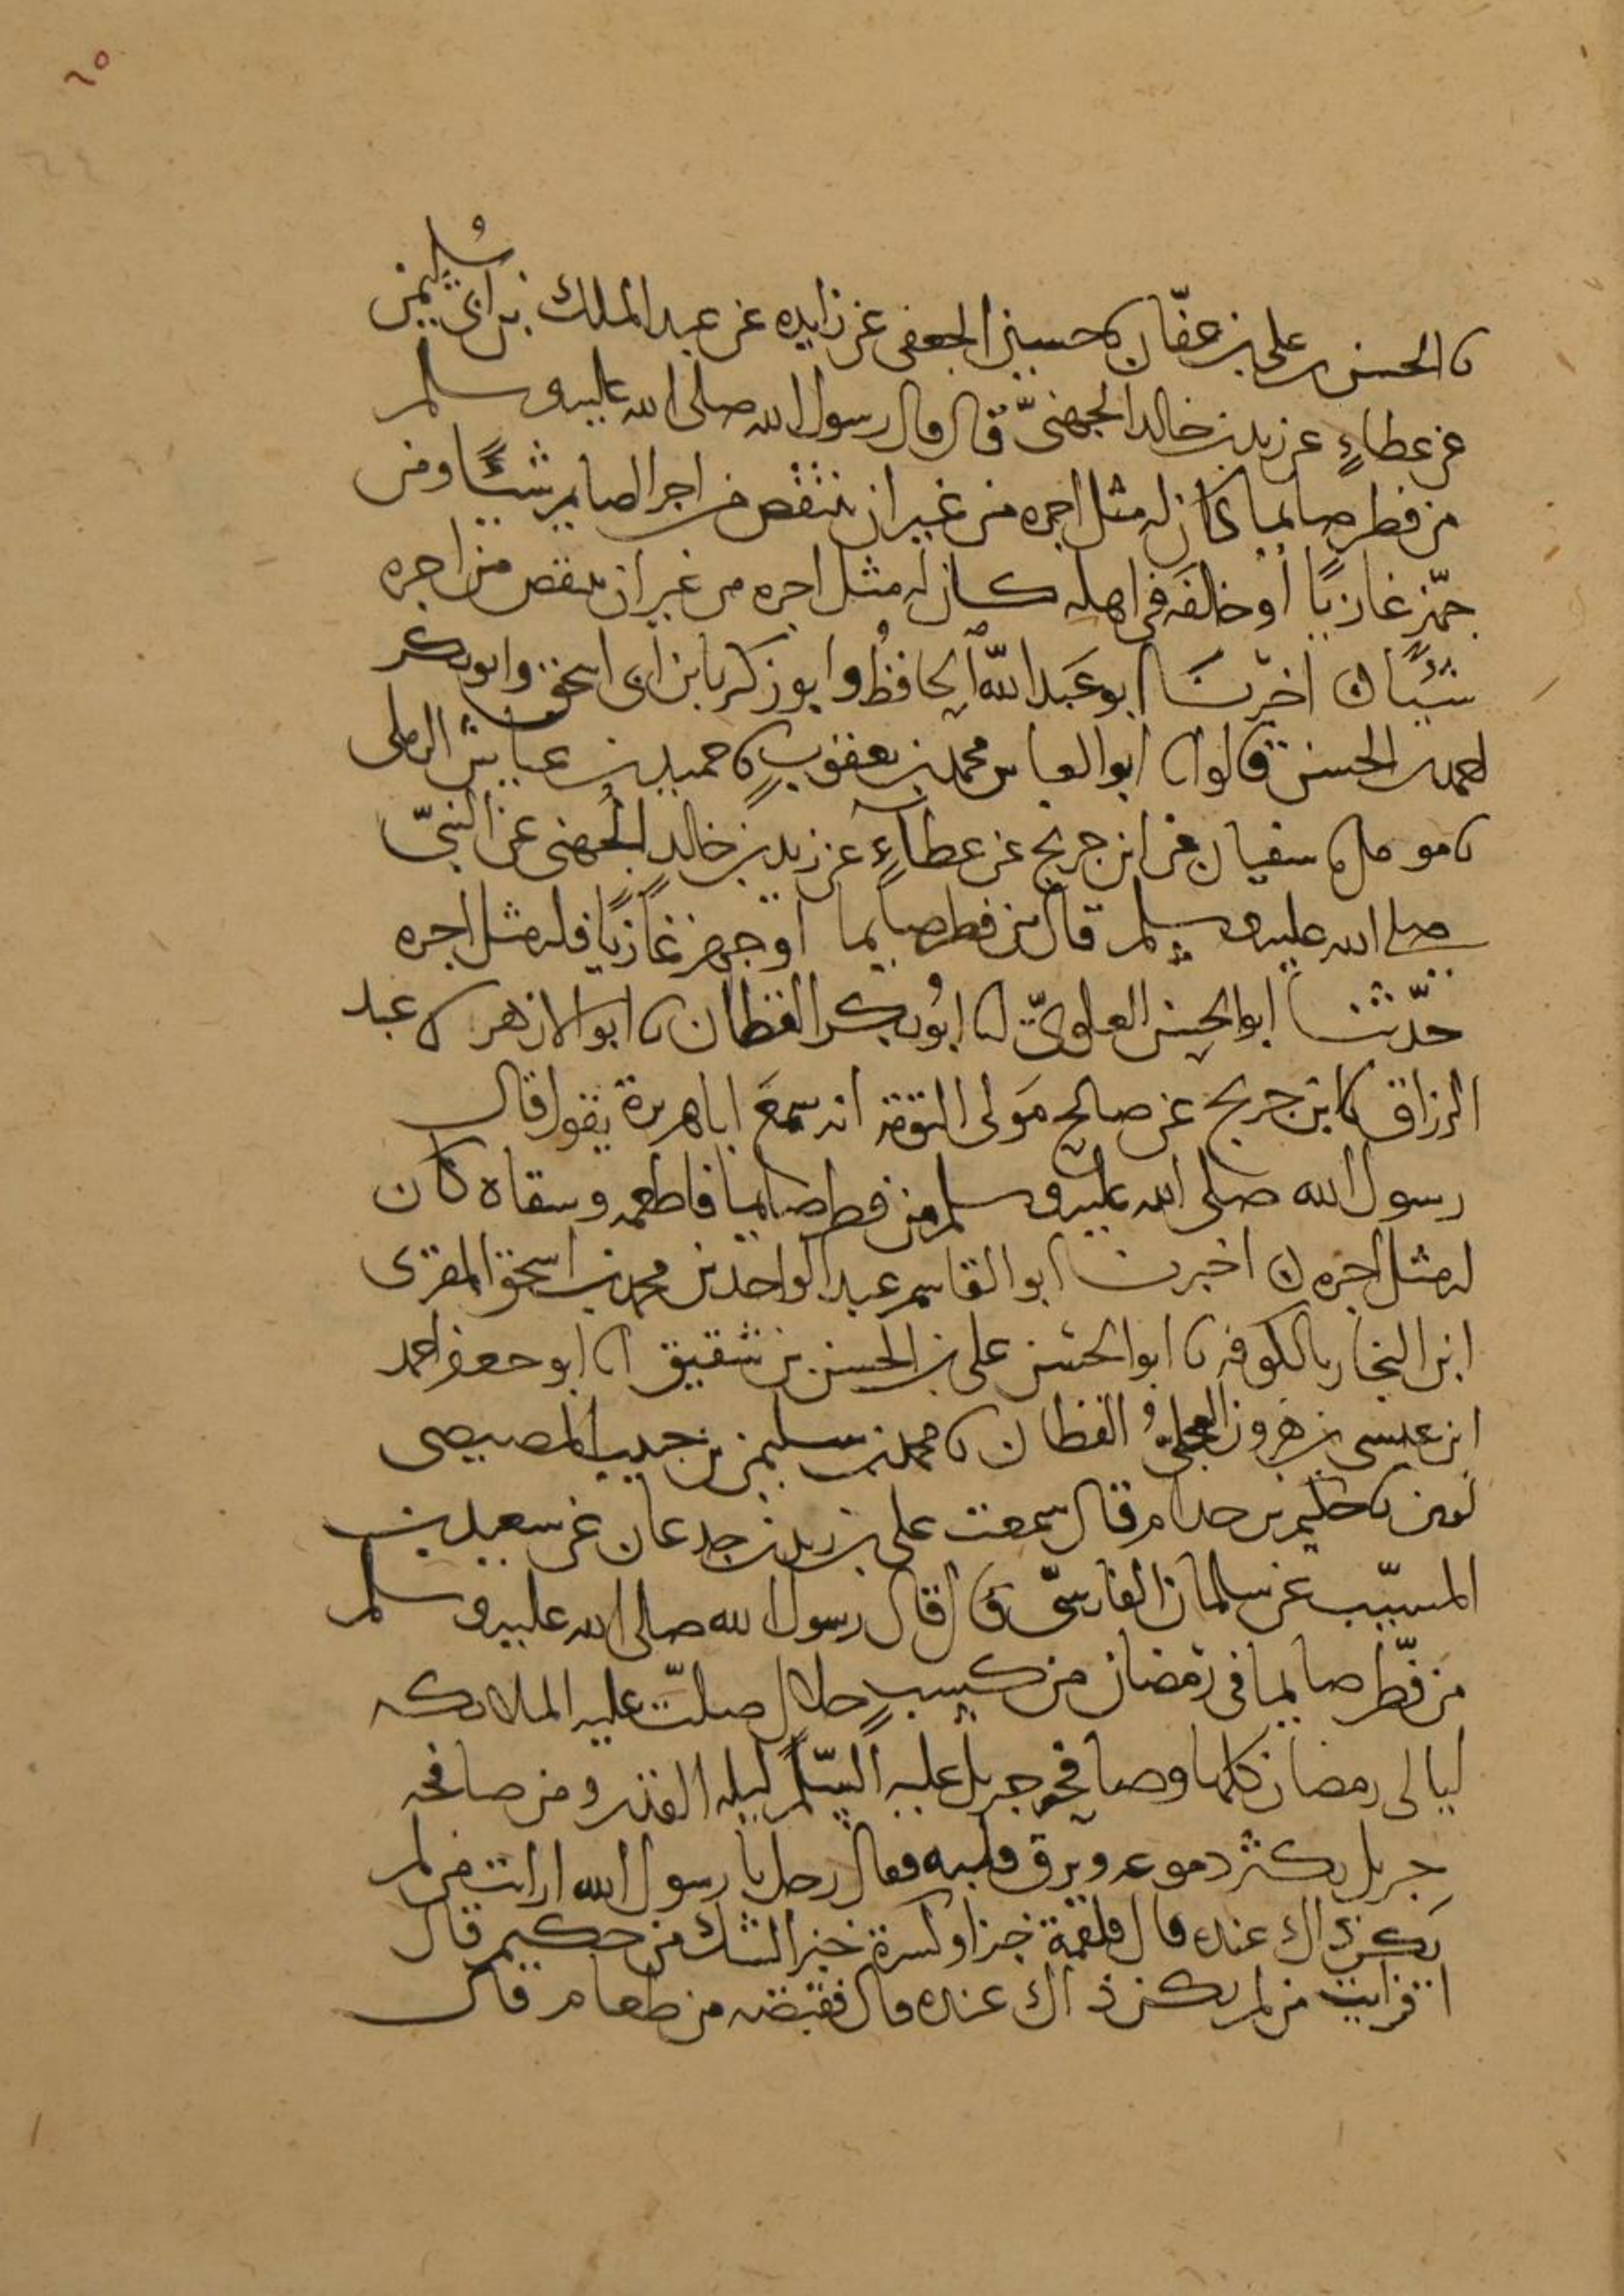 ٦٥
نا الحسن بن علي بن عفّان نا حسين الجعفي عن زايده عن عبد الملك بن ابي سُليمن
عن عطاءٍ عن زيد بن خالد الجهنيّ قال قال رسول الله صلى الله عليه وسلم
من فطر صايما كان له مثل اجره من غير ان ينتقص من اجر الصايم شيئًا ومن
جهّز غازيًا أو خالفه في اهله كان له مثل اجره من غير ان ينتقص من اجره
شيئًا ن اخبرنَا ابو عَبد الله الحافظُ وابو زكريا بن ابي اسحق وابو بكر
احمد بن الحسن قالوا انا ابو العباس محمد بن يعقوبٍ نا حميد بن عياش الرملي
نا مومل نا سفيان عن ابن جريج عن عطاءٍ عن زيد بن خالدٍ الجُهني عن النبيّ
صلى الله عليه وسلم قال من فطر صايما أو جهز غازيًا فله مثل اجره
حدّثنا ابو الحسن العلويّ انا ابُو بكر القطان نا ابو الازهر نا عبد
الرزاق انا ابن جريج عن صالح مَولى التوءمه انه سمعَ ابا هريرة يقول قال
رسول الله صلى الله عليه وسلم من فطر صايما فاطعمه وسقاه كان
له مثل اجره ن اخبرنا ابو القاسم عبد الواحد بن محمد بن اسحق المقرى
ابن النجار بالكوفه نا ابو الحسن علي بن الحسن بن شقيق انا ابو جعفر احمد
ابن عيسى بن هرون العجليُّ القطان نا محمد بن سليمن بن حبيب المصيصي
لوين نا حكيم بن حذام قال سمعت علي بن زيد بن جدعان عن سعيد بن
المسيّب عن سلمان الفارسيّ قال قال رسول الله صلى الله عليه وسلم
من فطّر صايما في رمضان من كسبٍ حلالٍ صلّت عليه الملايكه
ليالي رمضان كلها وصافحه جبريل عليه السّلم ليله القدر ومن صافحه
جبريل يكثر دموعه ويرق قلبه فقال رجل يا رسول الله ارايت من لم
يكن ذاك عنده قال فلقمة خبز او كسرة خبز الشك من حكيم قال
افرايت من لم يكن ذاك عنده قال فقبضه من طعام قال